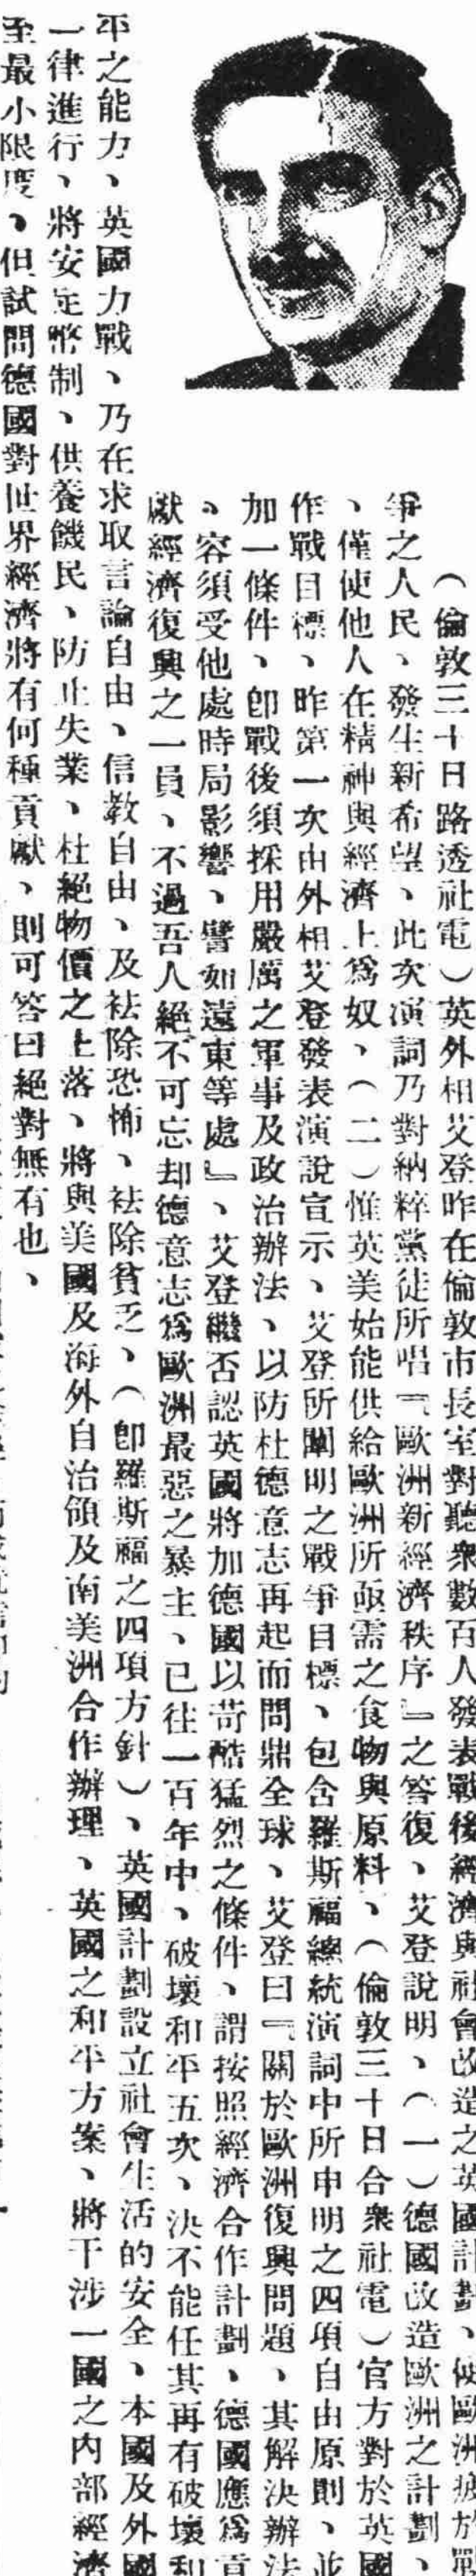 （倫敦三十日路透社電）英外相艾登昨在倫敦市長室對聽衆數百人發表戰後經濟與社會改造之英國計劃、使歐洲疲於戰
爭之人民、發生新希望、此次演詞乃對納粹黨徒所唱『歐洲新經濟秩序』之答復、艾登說明、（一）德國改造歐洲之計劃、
、僅使他人在精神與經濟上爲奴、（二）惟英美始能供給歐洲所亟需之食物與原料、（倫敦三十日合衆社電）官方對於英國
作戰目標、昨第一次由外相艾登發表演說宣示、艾登所闡明之戰爭目標、包含羅斯福總統演詞中所申明之四項自由原則、並
加一條件、卽戰後須採用嚴厲之軍事及政治辦法、以防杜德意志再起而問鼎全球、艾登曰『關於歐洲復興問題、其解決辦法
、容須受他處時局影響、譬如遠東等處』、艾登繼否認英國將加德國以苛酷猛烈之條件、謂按照經濟合作計劃、德國應爲貢
獻經濟復興之一員、不過吾人絕不可忘却德意志爲歐洲最惡之暴主、已往一百年中、破壞和平五次、決不能任其再有破壞和
平之能力、英國力戰、乃在求取言論自由、信教自由、及袪除恐怖、袪除貧乏、（卽羅斯福之四項方針）、英國計劃設立社會生活的安全、本國及外國
一律進行、將安定幣制、供養饑民、防止失業、杜絕物價之上落、將與美國及海外自治領及南美洲合作辦理、英國之和平方案、將干涉一國之內部經濟
至最小限度、但試問德國對世界經濟將有何種貢獻、則可答曰絕對無有也、